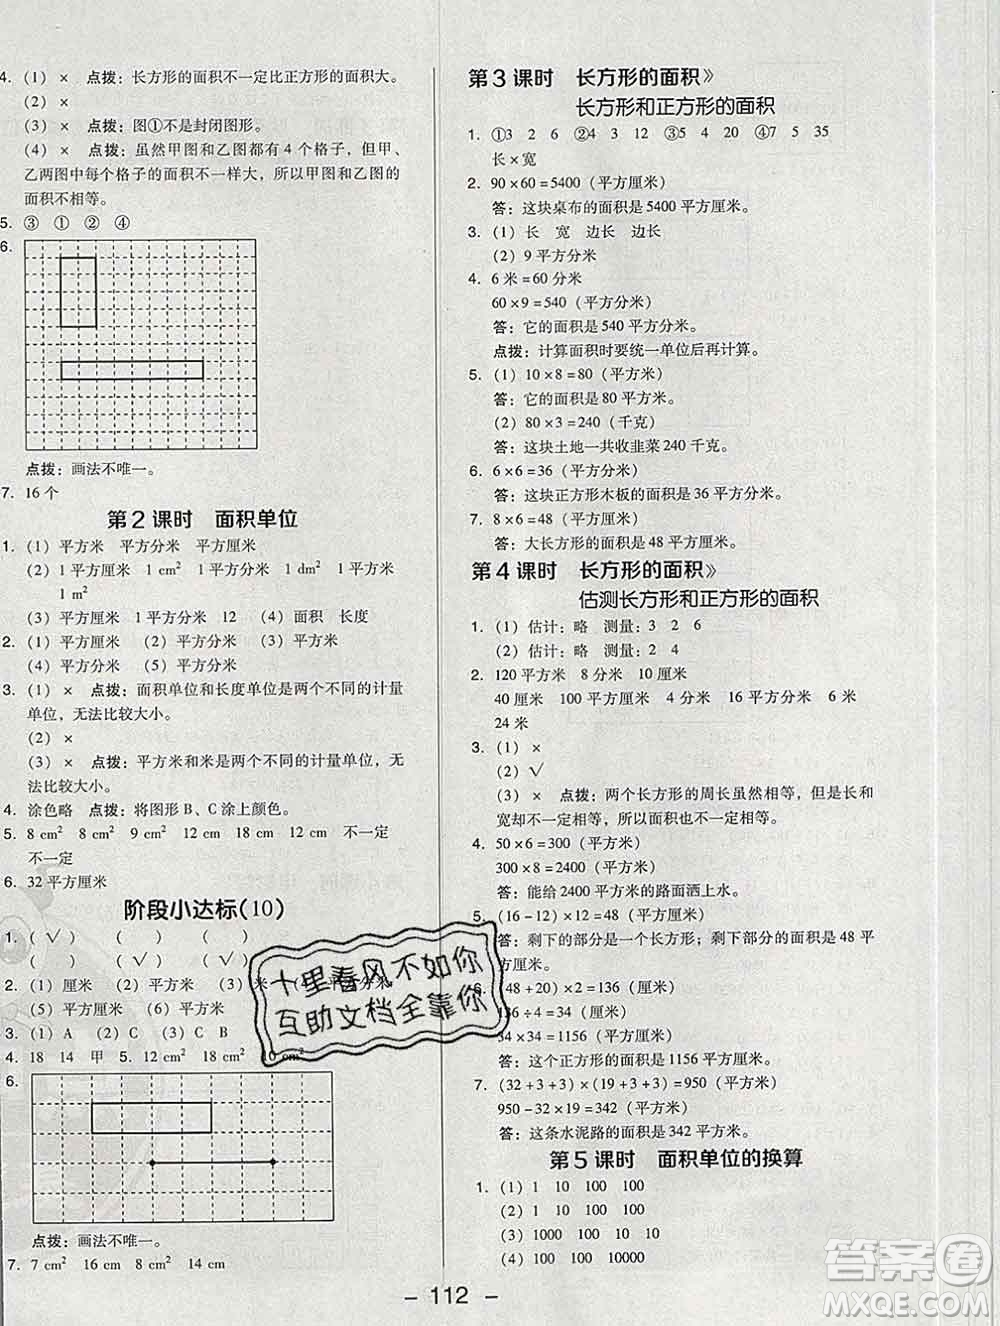 4. (1) × 点拨：长方形的面积不一定比正方形的面积大。
(2) ×
(3) × 点拨：图①不是封闭图形。
(4) × 点拨：虽然甲图和乙图都有 4 个格子，但甲、
乙两图中每个格子的面积不一样大，所以甲图和乙图的
面积不相等。
5. ③ ① ② ④
6.
点拨：画法不唯一。
7. 16 个
第 2 课时 面积单位
1. (1) 平方米 平方分米 平方厘米
(2) 1 平方厘米 1 cm² 1 平方分米 1 dm² 1 平方米
1 m²
(3) 平方厘米 1平方分米 12 (4) 面积 长度
2. (1) 平方厘米 (2) 平方分米 (3) 平方厘米
(4) 平方分米 (5) 平方分米
3. (1) × 点拨：面积单位和长度单位是两个不同的计量
单位，无法比较大小。
(2) ×
(3) × 点拨：平方米和米是两个不同的计量单位，无
法比较大小。
4. 涂色略 点拨：将图形 B、C 涂上颜色。
5. 8 cm² 8 cm² 9 cm² 12 cm² 18 cm 12 cm 不一定
不一定
6. 32 平方厘米
阶段小达标(10)
1. ( √ ) ( ) ( )
( ) ( ) ( √ )
2. (1) 厘米 (2) 平方分米 (3) 米 (4) 平方米
(5) 平方厘米 (6) 平方米
3. (1) A (2) C (3) C B
4. 18 14 甲 5. 12 cm² 18 cm² 10 cm²
6.
点拨：画法不唯一。
7. 7 cm² 16 cm 8 cm² 14 cm
第 3 课时 长方形的面积》
长方形和正方形的面积
1. ①3 2 6 ②4 3 12 ③5 4 20 ④7 5 35
长×宽
2. 90×60=5400 (平方厘米)
答：这块桌布的面积是 5400 平方厘米。
3. (1) 长 宽 边长 边长
(2) 9 平方分米
4. 6 米=60 分米
60×9=540 (平方分米)
答：它的面积是 540 平方分米。
点拨：计算面积时要统一单位后再计算。
5. (1) 10×8=80 (平方米)
答：它的面积是 80 平方米。
(2) 80×3=240 (千克)
答：这块土地一共收韭菜 240 千克。
6. 6×6=36 (平方分米)
答：这块正方形木板的面积是 36 平方分米。
7. 8×6=48 (平方厘米)
答：大长方形的面积是 48 平方厘米。
第 4 课时 长方形的面积》
估测长方形和正方形的面积
1. (1) 估计：略 测量：3 2 6
(2) 估计：略 测量：2 4
2. 120 平方米 8 分米 10 厘米
40 厘米 100 平方厘米 4 分米 16 平方分米 6 米
24 米
3. (1) ×
(2) √
(3) × 点拨：两个长方形的周长虽然相等，但是长和
宽却不一定相等，所以面积也不一定相等。
4. 50×6=300 (平方米)
300×8=2400 (平方米)
答：能给 2400 平方米的路面洒上水。
5. (16-12)×12=48 (平方厘米)
答：剩下的部分是一个长方形；剩下部分的面积是 48 平
方厘米。
6. (48+20)×2=136 (厘米)
136÷4=34 (厘米)
34×34=1156 (平方厘米)
答：这个正方形的面积是 1156 平方厘米。
7. (32+3+3)×(19+3+3)=950 (平方米)
950-32×19=342 (平方米)
答：这条水泥路的面积是 342 平方米。
第 5 课时 面积单位的换算
1. (1) 1 10 100 100
(2) 1 10 100 100
(3) 1000 100 10 10
(4) 100 100 10000
十里春风不如你
互助文档全靠你
- 112 -
答案圈
MXQE.COM